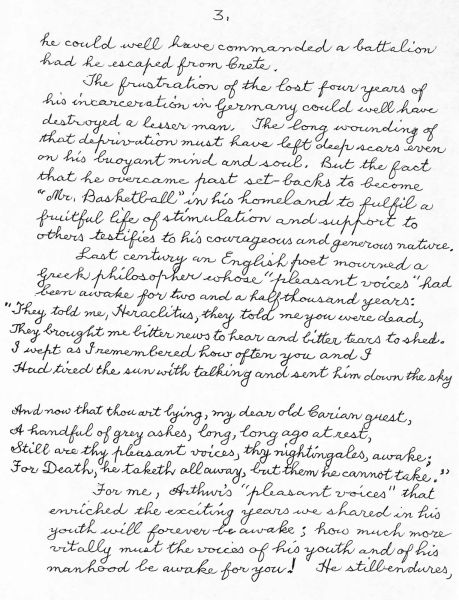 3.
he could well have commanded a battalion
had he escaped from Crete.
The frustration of the lost four years of
his incarceration in Germany could well have
destroyed a lesser man. The long wounding of
that deprivation must have left deep scars even
on his buoyant mind and soul. But the fact
that he overcame past set-backs to become
"Mr. Basketball" in his homeland to fulfil a
fruitful life of stimulation and support to
others testifies to his courageous and generous nature.
Last century an English poet mourned a
Greek philosopher whose "pleasant voices" had
been awake for two and a half thousand years:
"They told me, Heraclitus, they told me you were dead,
They brought me bitter news to hear and bitter tears to shed.
I wept as I remembered how often you and I
Had tired the sun with talking and sent him down the sky
And now that thou art lying, my dear old Carian guest,
A handful of grey ashes, long, long ago at rest,
Still are thy pleasant voices, thy nightingales, awake;
For Death, he taketh all away, but them he cannot take."
For me, Arthur's "pleasant voices" that
enriched the exciting years we shared in his
youth will forever be awake; how much more
vitally must the voices of his youth and of his
manhood be awake for you! He still endures,